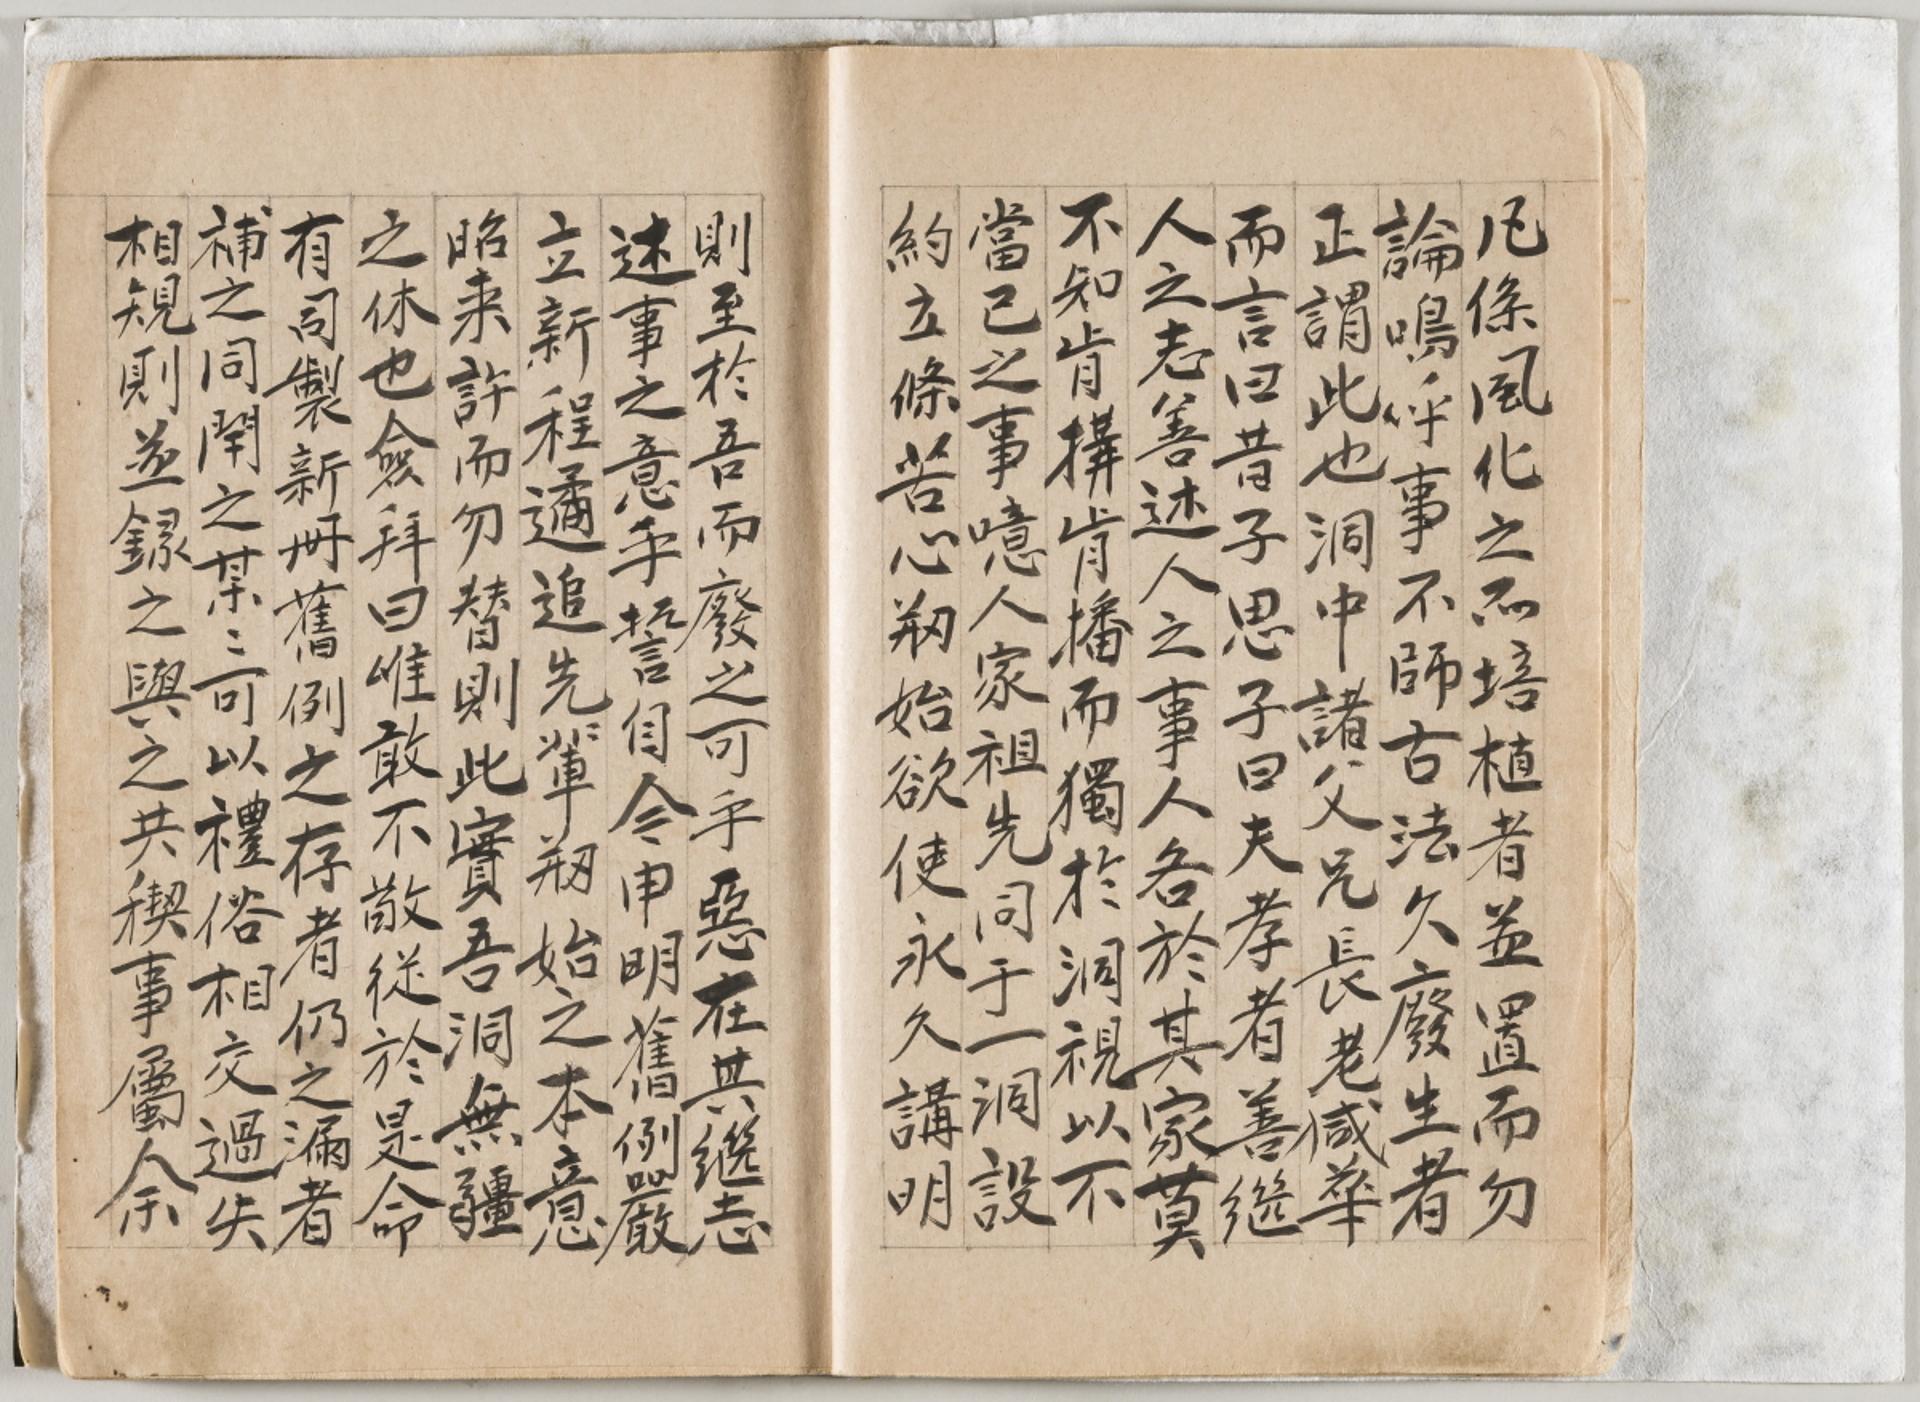 凡係風化之所培植者並置而勿
論嗚呼事不師古法久廢生者
正謂此也洞中諸父兄長老咸萃
而言曰昔子思子曰夫孝者善継
人之志善述人之事人各於其家莫
不知肯搆肯播而獨於洞視以不
當己之事噫人家祖先同于一洞設
約立條苦心刱始欲使永久講明
則至於吾而廢之可乎惡在其継志
述事之意乎誓自今申明舊例嚴
立新程遹追先軰刱始之本意
昭来許而勿替則此實吾洞無疆
之休也僉拜曰唯敢不敬從於是命
有司製新冊舊例之存者仍之漏者
補之同閈之某某可以禮俗相交過失
相規則並錄之與之共稧事屬余